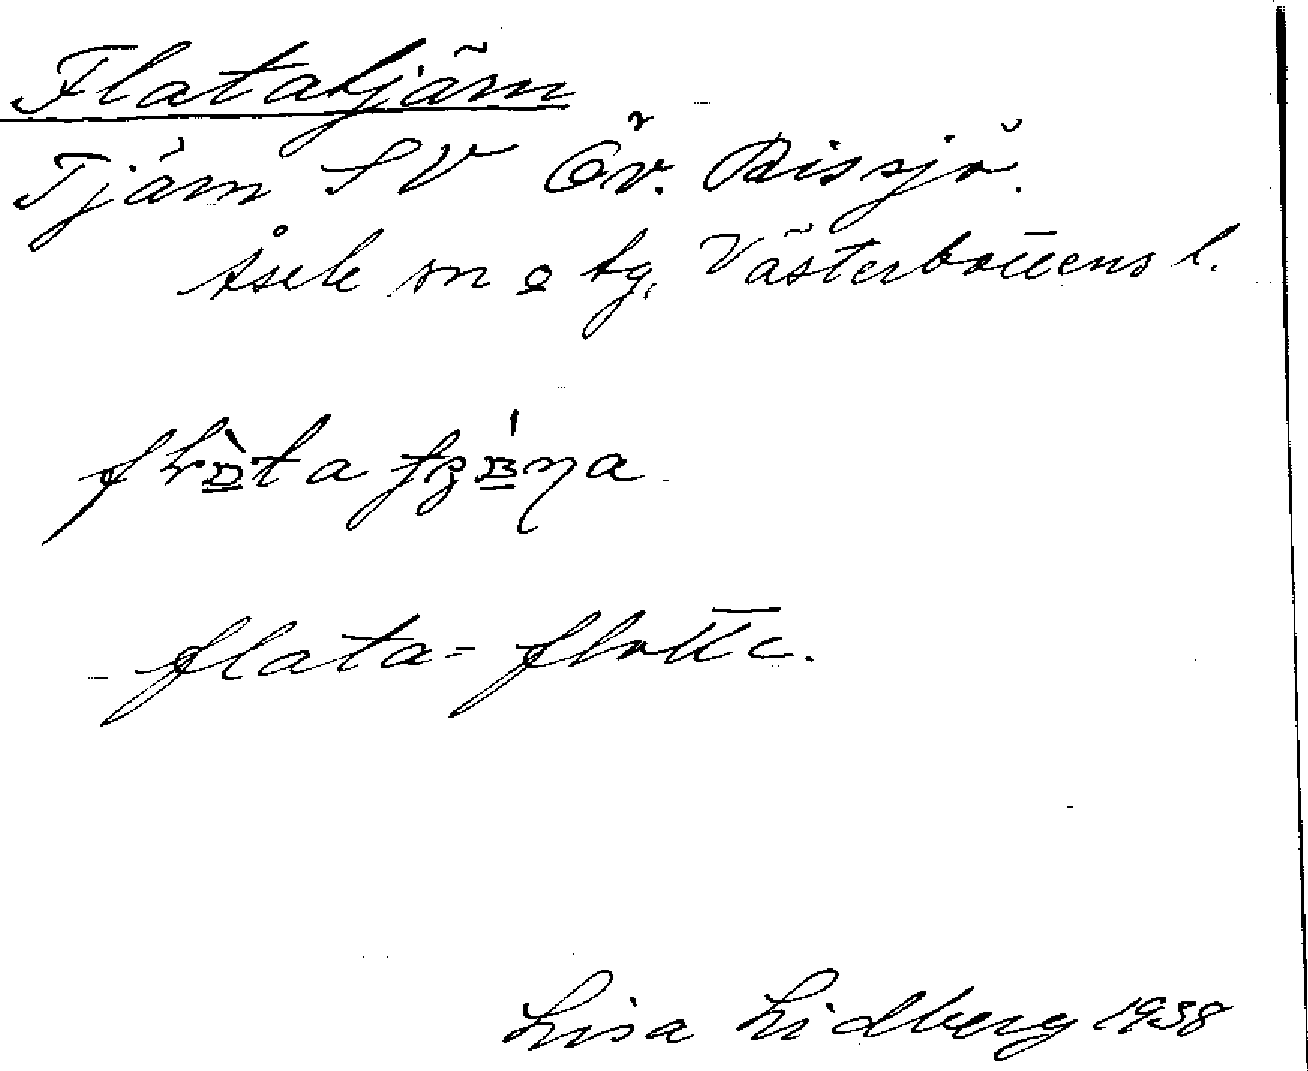 Flatatjäm
Tjäm SV Öv. Rissjö.
Åsele sn o tg, Västerbottens l.
flata- flotta.
Lisa Lidberg 1938